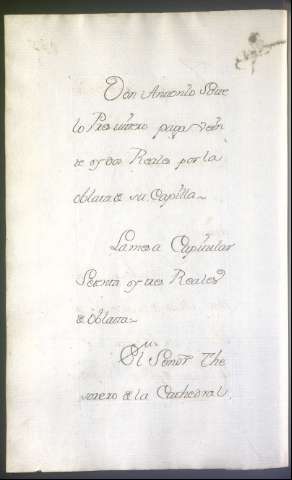 Don Antonio Sure
lo Presvitero paga vein
te y dos Reales por la
oblata de su Capilla
La mesa Capitular
Setenta y tres Reales
de oblata
El Señor The
sorero de la Cathedral